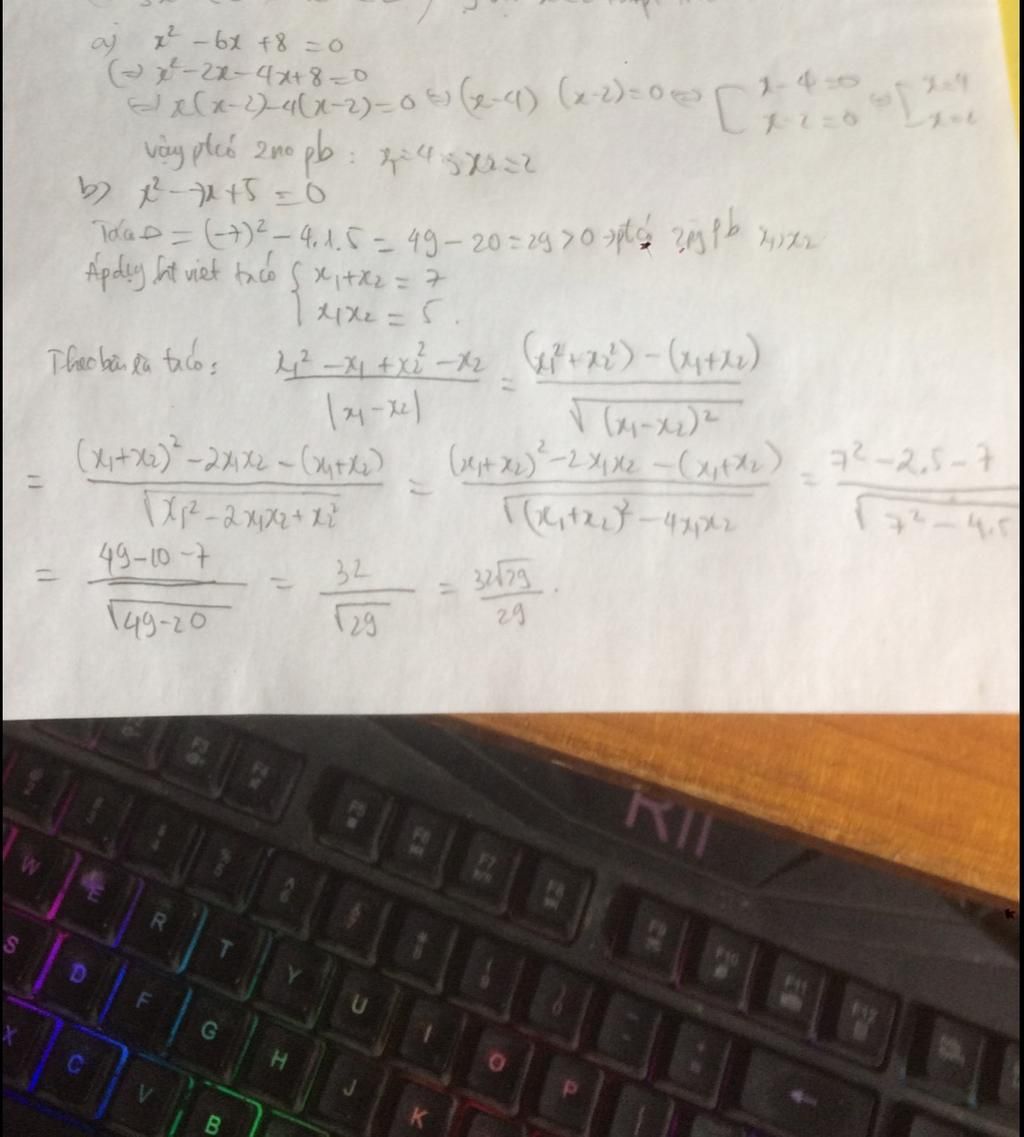 a) x² - 6x + 8 = 0
(=) x² - 2x - 4x + 8 = 0
(=) x(x-2) - 4(x-2) = 0 (=) (x-4) (x-2) = 0 (=) [ x - 4 = 0 x - 2 = 0 (=) [ x = 4 x = 2
vậy pt có 2 no pb : x₁ = 4 ; x₂ = 2
b) x² - 7x + 5 = 0
Ta có Δ = (-7)² - 4.1.5 = 49 - 20 = 29 > 0 → pt có 2 pb x₁, x₂
Áp dụng viet ta có { x₁ + x₂ = 7
x₁x₂ = 5.
Theo bài ra ta có : (x₁² - x₁ + x₂² - x₂)/|x₁ - x₂| = ((x₁² + x₂²) - (x₁ + x₂))/√(x₁ - x₂)²
= ((x₁ + x₂)² - 2x₁x₂ - (x₁ + x₂))/√(x₁² - 2x₁x₂ + x₂²) = ((x₁ + x₂)² - 2x₁x₂ - (x₁ + x₂))/√((x₁ + x₂)² - 4x₁x₂) = (7² - 2.5 - 7)/√(7² - 4.5)
= (49 - 10 - 7)/√(49 - 20) = 32/√29 = 32√29/29 .
RII
F7
F9 F10 F11 F12
W E R T Y U I O P
S D F G H J K
X C V B